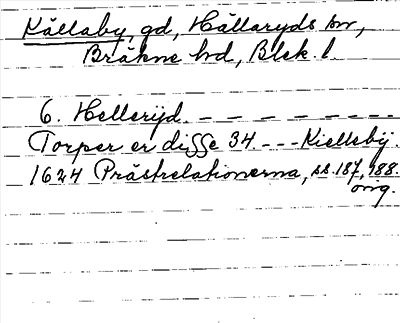 Källaby, gd, Hällaryds sn,
Bräkne hd, Blek. l.
6. Hellerijd. – – – – – – – –
Torper er disse 34 – – – Kiellsbÿ.
1624 Prästrelationerna, ss. 187, 188.
orig.